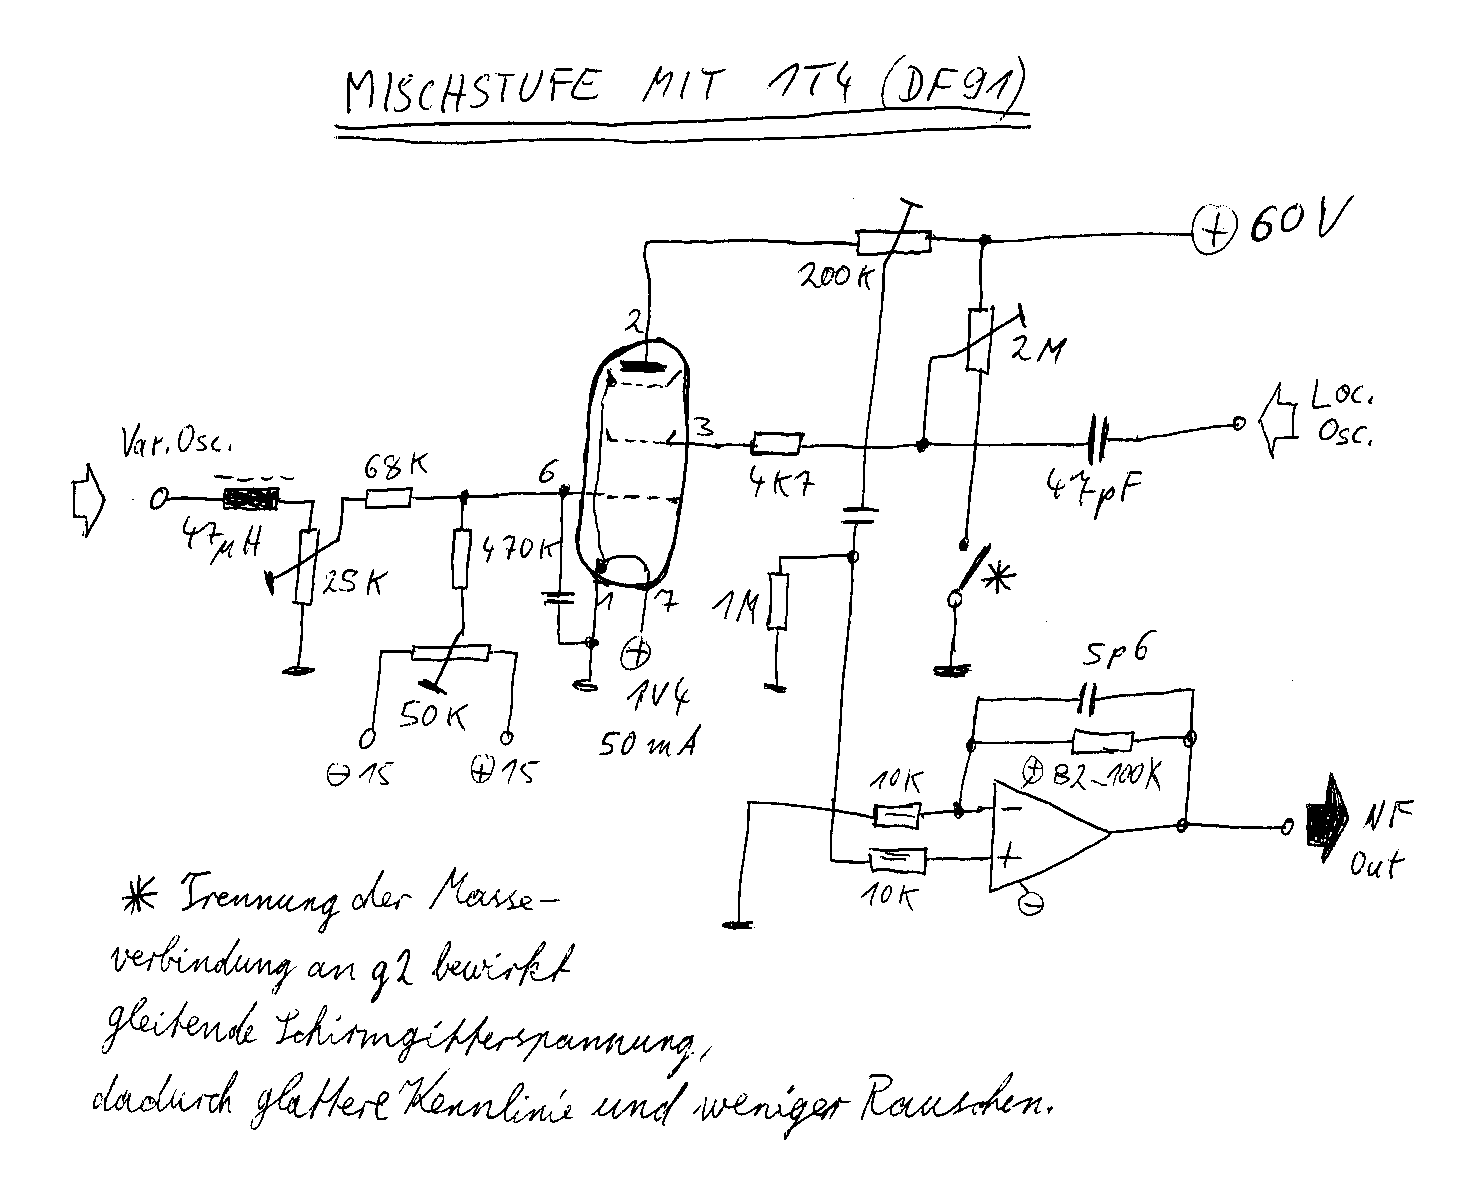 MISCHSTUFE MIT 1T4 (DF91)
⊕ 60V
200K
2
2M
Loc.
Osc.
3
Var. Osc.
68K
6
4K7
47pF
47µH
470K
25K
1
7
1M
*
⊕
1V4
50mA
5p6
50K
⊖15
⊕15
10K
⊕ 82-100K
−
+
NF
Out
10K
⊖
* Trennung der Masse-
verbindung an g2 bewirkt
gleitende Schirmgitterspannung,
dadurch glattere Kennlinie und weniger Rauschen.